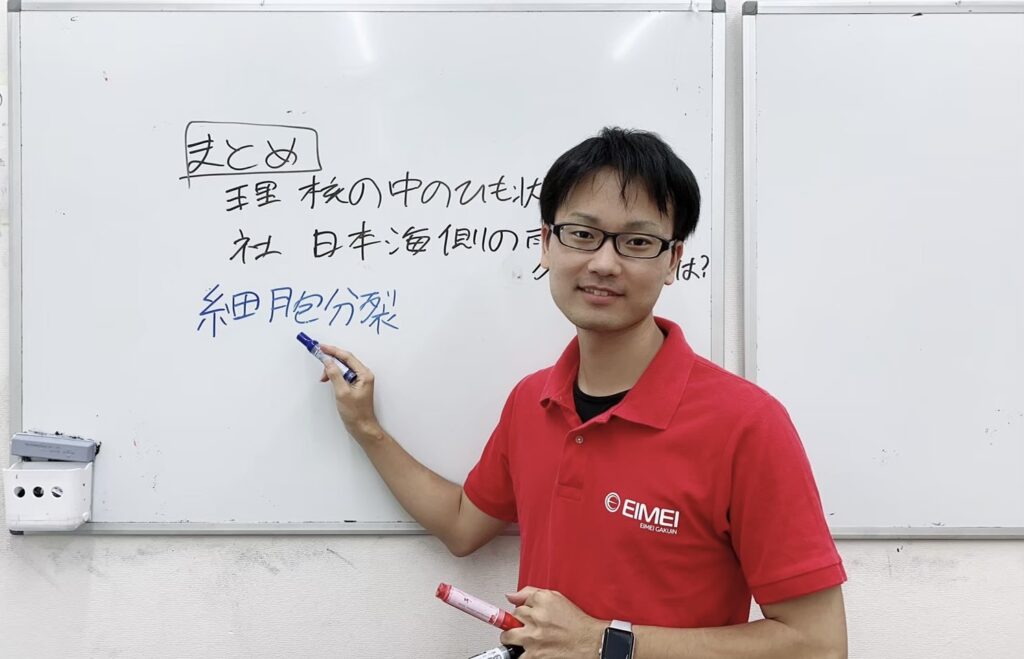 まとめ
理 核の中のひも状
社 日本海側の
は?
細胞分裂
EIMEI
EIMEI GAKUIN